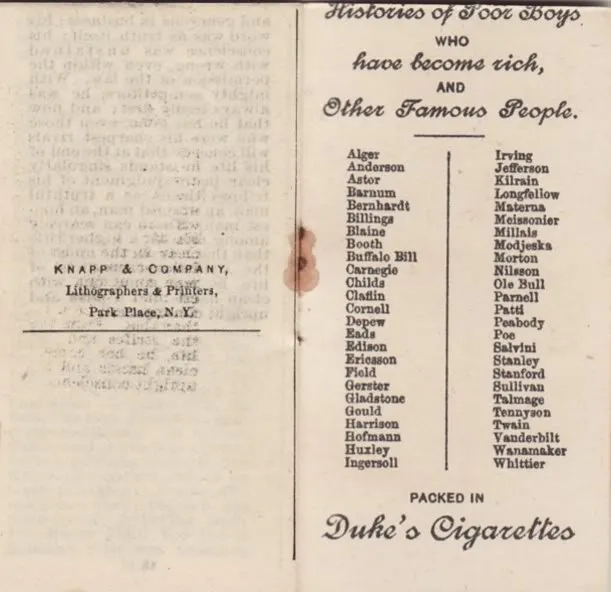 KNAPP & COMPANY,
Lithographers & Printers,
Park Place, N.Y.
Histories of Poor Boys
WHO
have become rich,
AND
Other Famous People.
Alger
Anderson
Astor
Barnum
Bernhardt
Billings
Blaine
Booth
Buffalo Bill
Carnegie
Childs
Claflin
Cornell
Depew
Eads
Edison
Ericsson
Field
Gerster
Gladstone
Gould
Harrison
Hofmann
Huxley
Ingersoll
Irving
Jefferson
Kilrain
Longfellow
Materna
Meissonier
Millais
Modjeska
Morton
Nilsson
Ole Bull
Parnell
Patti
Peabody
Poe
Salvini
Stanley
Stanford
Sullivan
Talmage
Tennyson
Twain
Vanderbilt
Wanamaker
Whittier
PACKED IN
Duke's Cigarettes